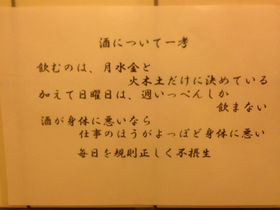 酒について一考
飲むのは、月水金と
火木土だけに決めている
加えて日曜日は、週いっぺんしか
飲まない
酒が身体に悪いなら
仕事のほうがよっぽど身体に悪い
毎日を規則正しく不摂生